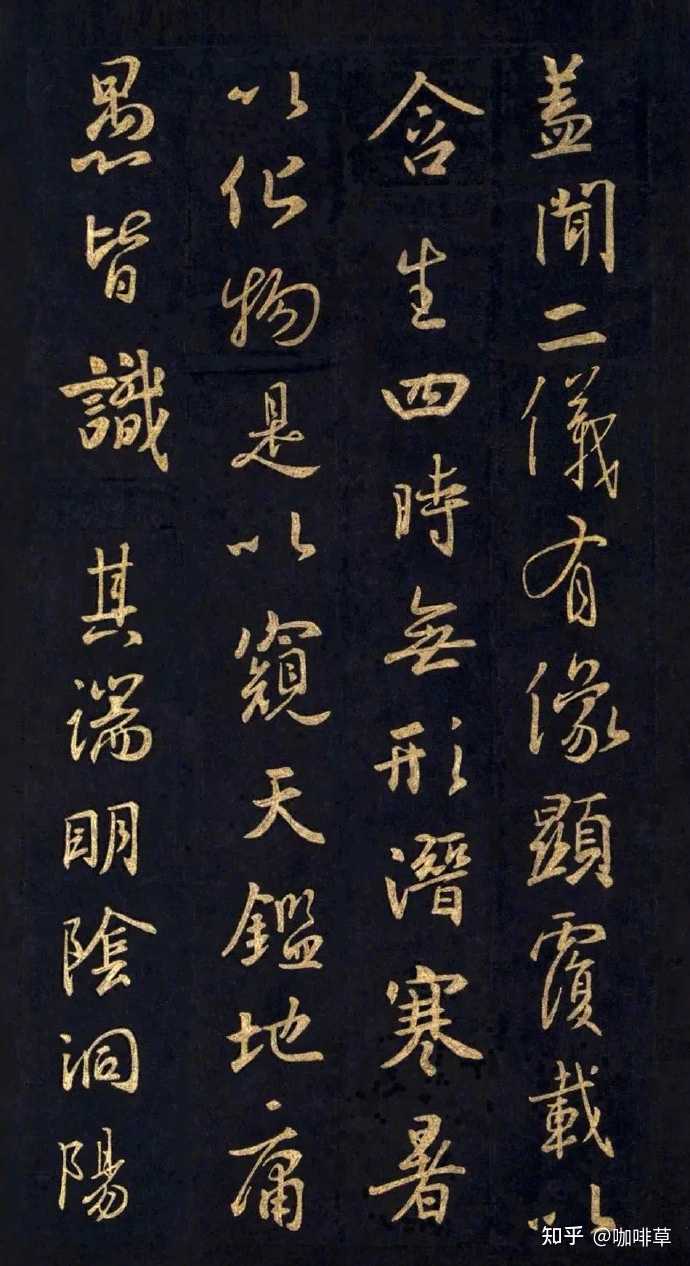 蓋聞二儀有像顯覆載以
含生四時無形潛寒暑
以化物是以窺天鑑地庸
愚皆識其端明陰洞陽
知乎 @咖啡草